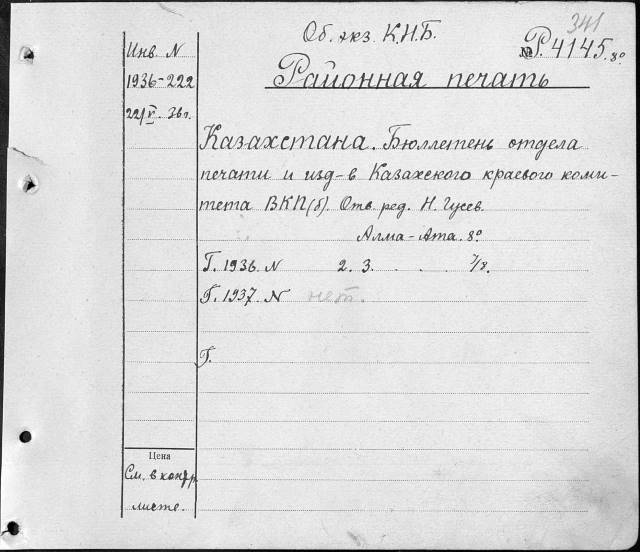 341
Об. экз. К.Н.Б.
№ Р. 4145. 8°
Инв. N
1936-222
22/V. 36 г.
Районная печать
Казахстана. Бюллетень отдела
печати и изд-в Казахского краевого коми-
тета ВКП(б). Отв. ред. Н. Гусев.
Алма-Ата. 8°
Г. 1936. N 2. 3. . . 7/8.
Г. 1937. N нет.
Г.
Цена
См. в контр
листе.